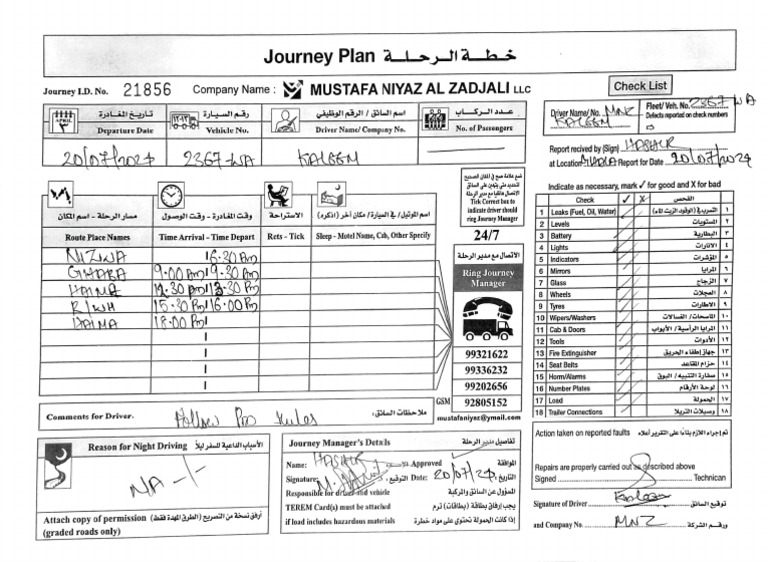 Journey Plan خطة الرحلة
Journey I.D. No. 21856 Company Name : MUSTAFA NIYAZ AL ZADJALI LLC
Check List
تاريخ المغادرة
Departure Date
رقم السيارة
Vehicle No.
اسم السائق / الرقم الوظيفي
Driver Name/ Company No.
عدد الركاب
No. of Passengers
20/07/2024 2367-WA KALEEM
Driver Name/ No. MNZ
KALEEM
Fleet/ Veh. No. 2367 WA
Defects reported on check numbers
Report recived by (Sign) HASHUR
at Location GHABA Report for Date 20/07/2024
مسار الرحلة - اسم المكان
Route Place Names
وقت المغادرة - وقت الوصول
Time Arrival - Time Depart
الاستراحة
Rets - Tick
اسم الموتيل / في السيارة / مكان آخر (اذكره)
Sleep - Motel Name, Cab, Other Specify
NIZWA 16.30 Pm
GHABA 9.00 Pm 19.30 Pm
HAIMA
R/WH 15.30 Pm 16.00 Pm
HAIMA 18.00 Pm
Tick Correct box to
indicate driver should
ring Journey Manager
24/7
الاتصال مع مدير الرحلة
Ring Journey
Manager
99321622
99336232
99202656
GSM 92805152
mustafaniyaz@ymail.com
Indicate as necessary, mark ✓ for good and X for bad
Check ✓ X الفحص
1 Leaks (Fuel, Oil, Water) ١
2 Levels المستويات ٢
3 Battery البطارية ٣
4 Lights الانارات ٤
5 Indicators المؤشرات ٥
6 Mirrors المرايا ٦
7 Glass الزجاج ٧
8 Wheels العجلات ٨
9 Tyres الاطارات ٩
10 Wipers/Washers الماسحات/ الغسالات ١٠
11 Cab & Doors المرايا الرأسية/ الأبواب ١١
12 Tools الأدوات ١٢
13 Fire Extinguisher جهاز إطفاء الحريق ١٣
14 Seat Belts حزام المقاعد ١٤
15 Horn/Alarms صفارة التنبيه/ البوق ١٥
16 Number Plates لوحة الأرقام ١٦
17 Load الحمولة ١٧
18 Trailer Connections وصيلات التريلا ١٨
Comments for Driver. Follow Pro Rules ملاحظات السائق:
Reason for Night Driving الأسباب الداعية للسفر ليلاً
NA -/-
Attach copy of permission أرفق نسخة من التصريح (الطرق المهدة فقط)
(graded roads only)
Journey Manager's Details تفاصيل مدير الرحلة
Name: HASHUR Approved الموافقة
Signature: التوقيع Date: 20/07/24 التاريخ:
Responsible for driver and vehicle مسؤول عن السائق والمركبة
TEREM Card(s) must be attached يجب إرفاق بطاقة (بطاقات) ترم
if load includes hazardous materials إذا كانت الحمولة تحتوي على مواد خطرة
Action taken on reported faults تم إجراء اللازم بناءً على التقرير أعلاه
Repairs are properly carried out as described above
Signed Technican
Signature of Driver Kaleem توقيع السائق
and Company No. MNZ ورقم الشركة